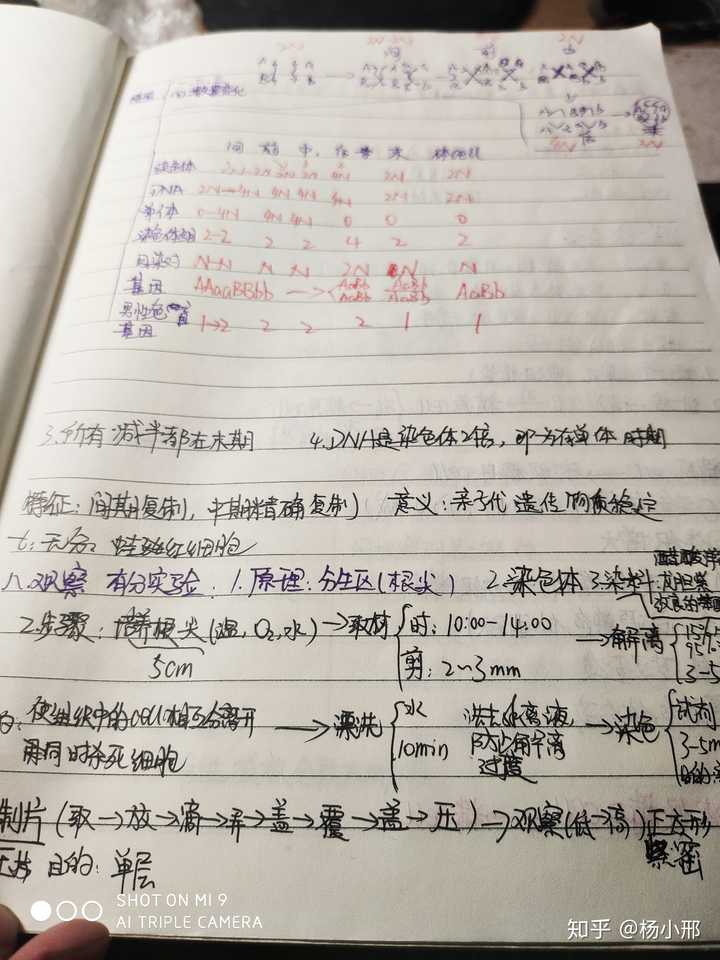 2N 间 前 2N
4N 2N
间 前 中 后 末 体细胞
染色体 2N-2N 2N 2N 4N 2N 2N
DNA 2N→4N 4N 4N 4N 2N 2N
单体 0-4N 4N 4N 0 0 0
染色体组 2-2 2 2 4 2 2
同染对 N-N N N 2N N N
基因 AAaaBBbb → AaBb AaBb AaBb
AaBb AaBb
男性色盲
基因 1→2 2 2 2 1 1
3.所有减半都在末期 4.DNA是染色体2倍,即为存单体时期
特征:间期复制,中期精确复制) 意义:亲子代遗传物质稳定
七:无分:蛙红细胞
八.观察 有分实验:1.原理:分生区(根尖) 2.染色体 3.染料
2.步骤:培养根尖(温,O₂,水)→取材 时:10:00-14:00 →解离
5cm 剪:2~3mm 3-5
使组织中的cell相互分离开 →漂洗 水 洗去解离液, →染色 试剂
同时杀死细胞 10min 防止解离 3-5m
过度 目的
制片(取→放→滴→弄→盖→覆→盖→压)→观察(低→高)正方形
紧密
压片 目的:单层
SHOT ON MI 9
AI TRIPLE CAMERA
知乎 @杨小邢